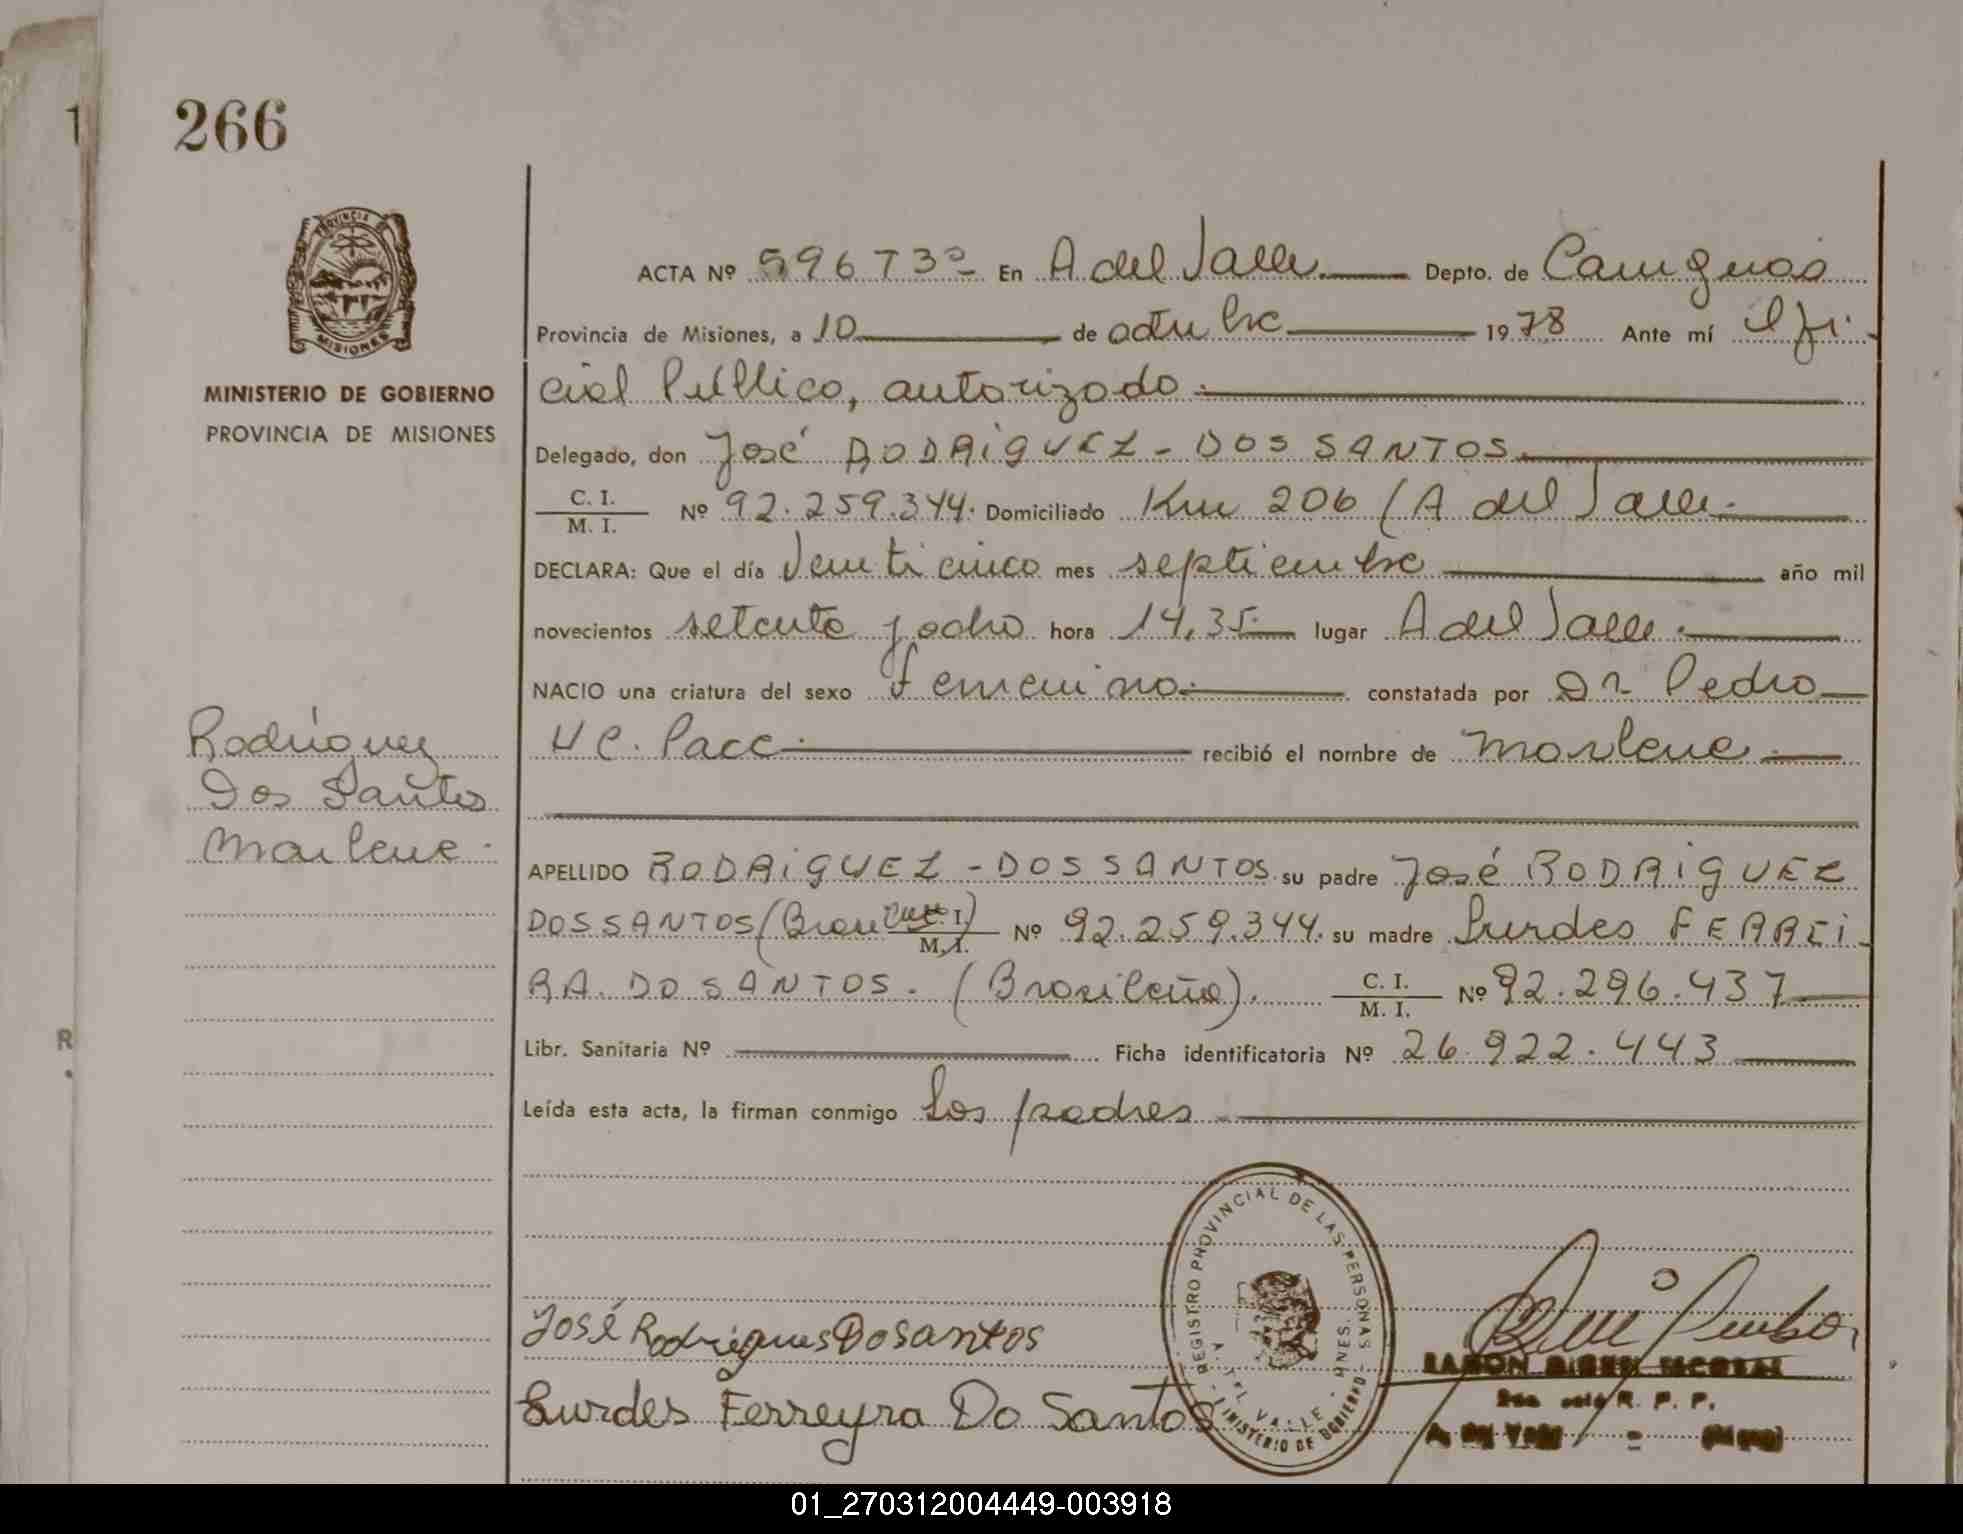 266
PROVINCIA
MISIONES
MINISTERIO DE GOBIERNO
PROVINCIA DE MISIONES
Rodríguez
Dos Santos
Marlene.
ACTA Nº 596 73º En A del Valle Depto. de Cainguas
Provincia de Misiones, a 10 de octubre 1978 Ante mí Ofi
cial Público, autorizado.
Delegado, don José RODRIGUEZ - DOS SANTOS.
C. I.
M. I. Nº 92.259.344. Domiciliado Km 206 (A del Valle.
DECLARA: Que el día Veinticinco mes septiembre año mil
novecientos setenta y ocho hora 14,35 lugar A del Valle.
NACIO una criatura del sexo femenino. constatada por Dr Pedro
recibió el nombre de Marlene.
APELLIDO RODRIGUEZ - DOS SANTOS. su padre José RODRIGUEZ
DOS SANTOS (C. I.) M. I. Nº 92.259.344. su madre Lurdes FERREI
RA. DO SANTOS. (Brasileña). C. I.
M. I. Nº 92.296.437
Libr. Sanitaria Nº Ficha identificatoria Nº 26.922.443
Leída esta acta, la firman conmigo Los padres
José Rodrigues Do santos
Lurdes Ferreyra Do Santos
REGISTRO PROVINCIAL DE LAS PERSONAS
A. DEL VALLE - MNES.
MINISTERIO DE GOBIERNO
RAMON MIGUEL ESCOBAR
R. P. P.
01_270312004449-003918